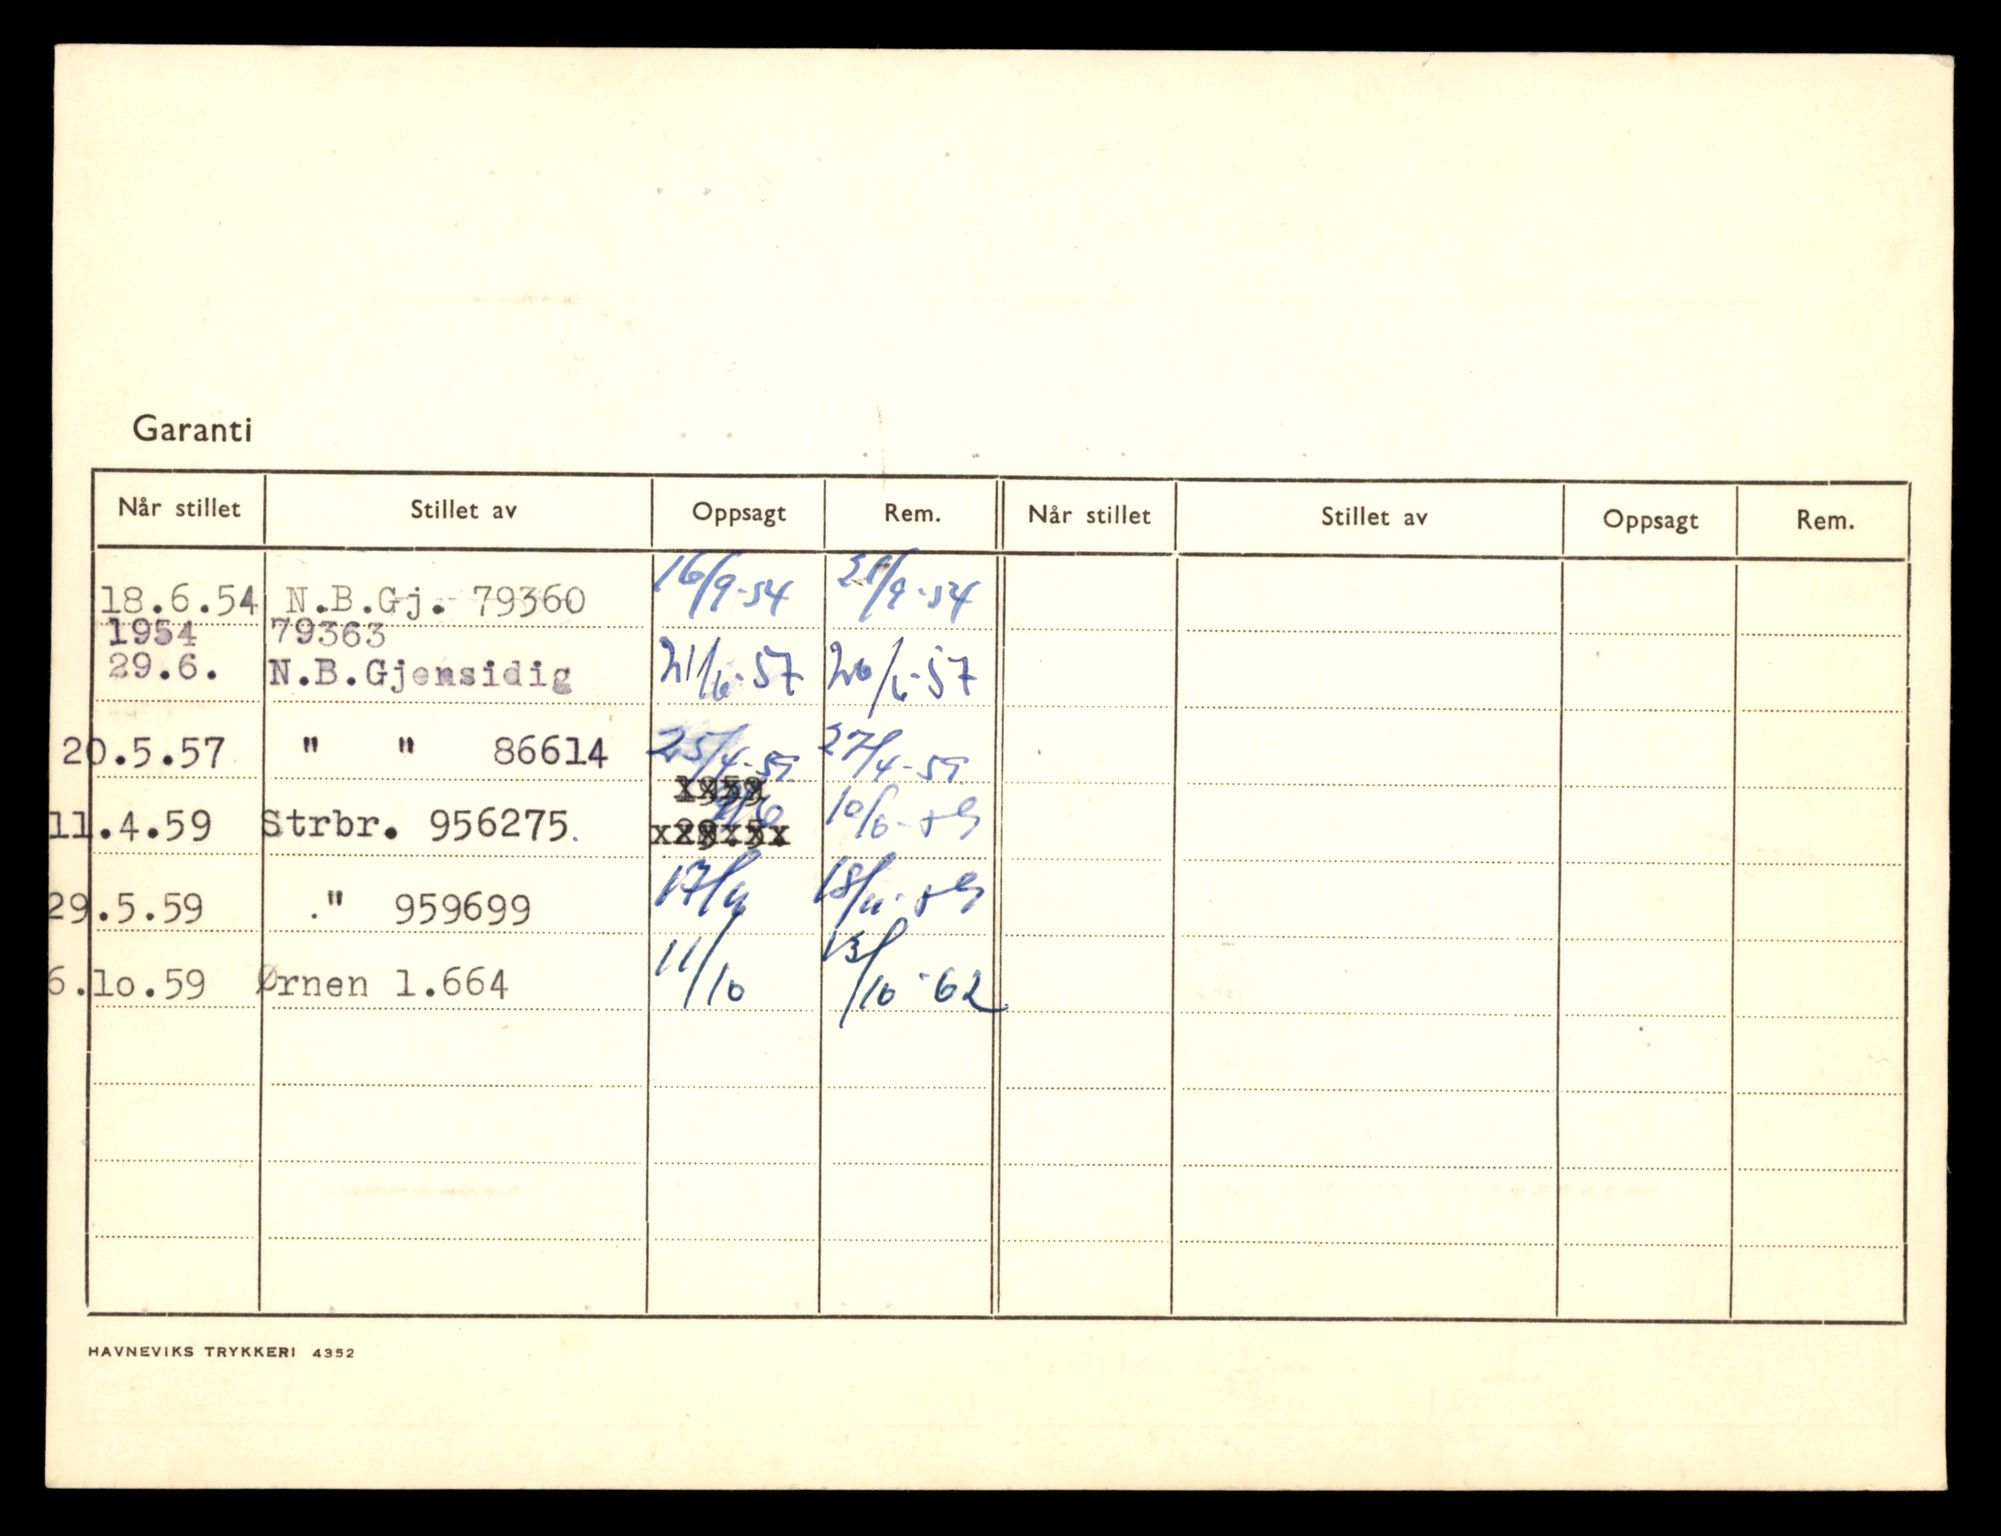 Garanti
Når stillet Stillet av Oppsagt Rem. Når stillet Stillet av Oppsagt Rem.
18.6.54 N.B.Gj. 79360 16/9-54 21/9-54
1954 79363
29.6. N.B.Gjensidig 21/6-57 26/6-57
20.5.57 " " 86614 25/4-59 27/4-59
11.4.59 Strbr. 956275. 9/6 10/6-59
29.5.59 ." 959699 17/11 18/11-59
6.10.59 Ørnen 1.664 11/10 13/10-62
HAVNEVIKS TRYKKERI 4352